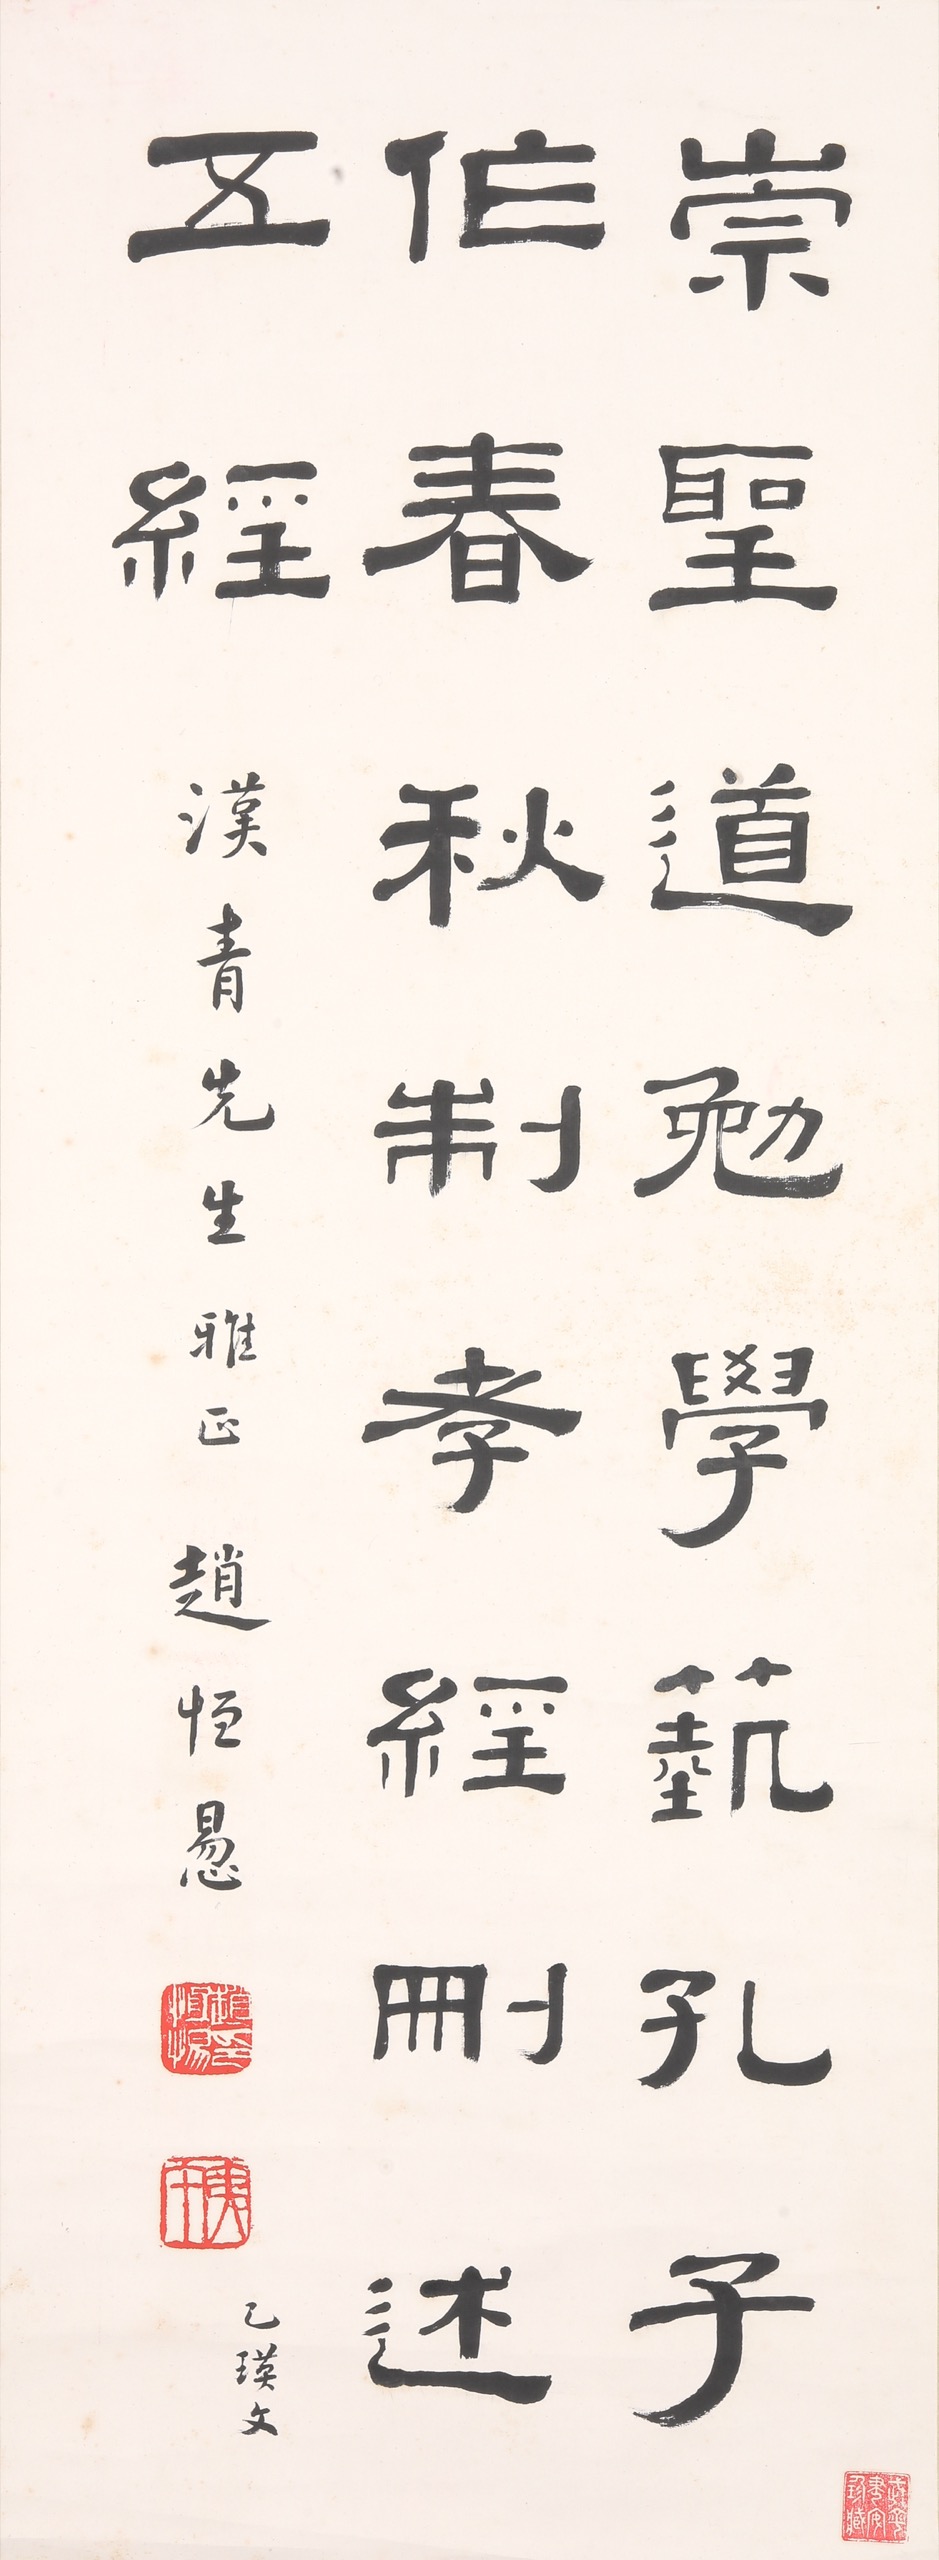 崇聖道勉學藝孔子
作春秋制孝經刪述
五經
漢青先生雅正 趙恒惖
乙瑛文
趙恒惕印
夷午